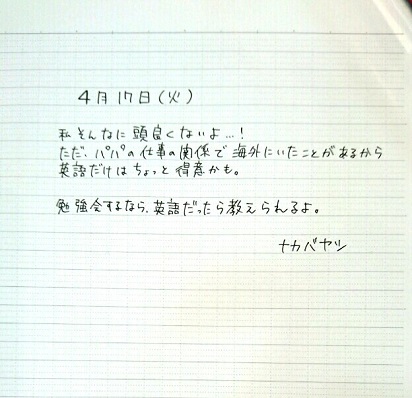 4月17日(火)
私そんなに頭良くないよ…!
ただ、パパの仕事の関係で海外にいたことがあるから
英語だけはちょっと得意かも。
勉強会するなら、英語だったら教えられるよ。
ナカバヤシ